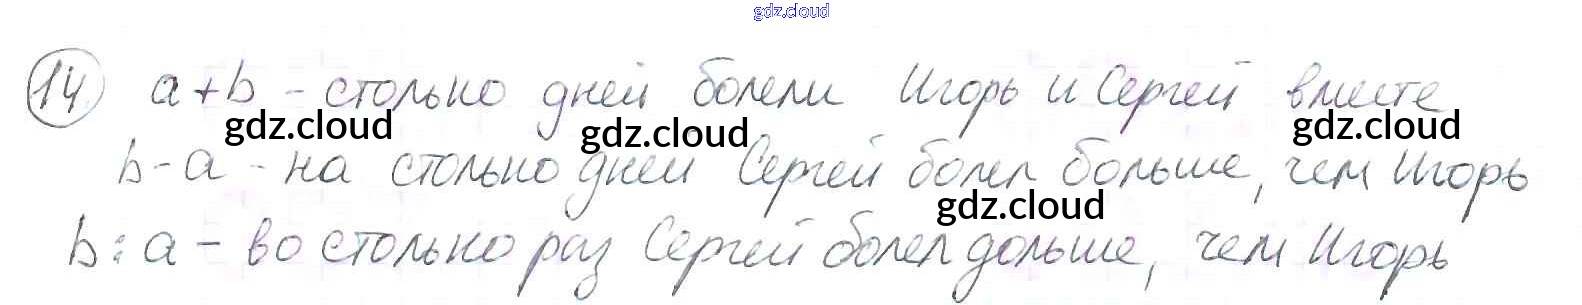 gdz.cloud
14 a+b - столько дней болели Игорь и Сергей вместе
gdz.cloud gdz.cloud gdz.cloud
b-a - на столько дней Сергей болел больше, чем Игорь
gdz.cloud
b:a - во столько раз Сергей болел дольше, чем Игорь